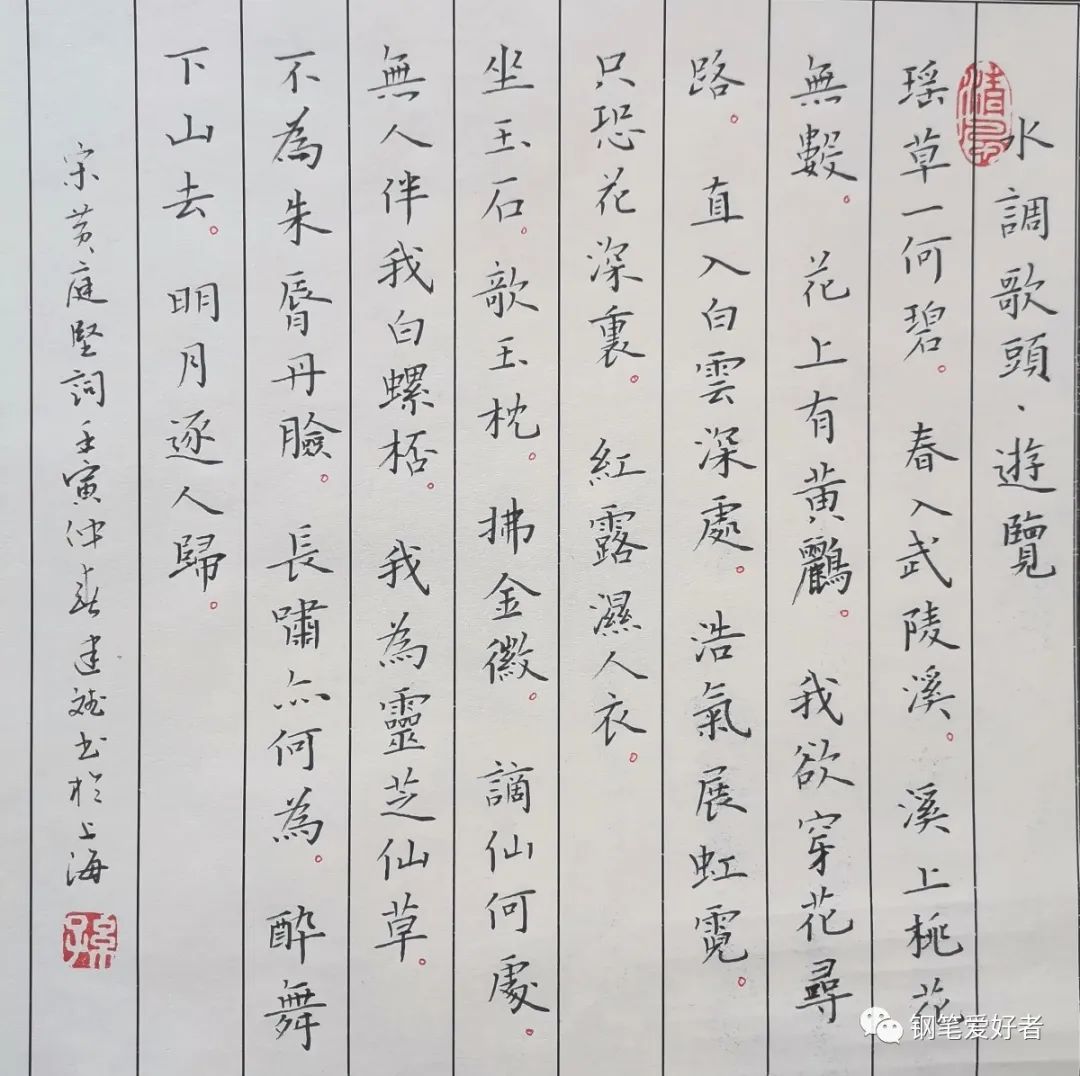 水調歌頭·遊覽
瑶草一何碧。春入武陵溪。溪上桃花
無數。花上有黄鸝。我欲穿花尋
路。直入白雲深處。浩氣展虹霓。
只恐花深裏。紅露濕人衣。
坐玉石。歌玉枕。拂金徽。謫仙何處。
無人伴我白螺桮。我為靈芝仙草。
不為朱脣丹臉。長嘯亦何為。醉舞
下山去。明月逐人歸。
宋黄庭堅詞壬寅仲春建斌书於上海
孫
清風
钢笔爱好者